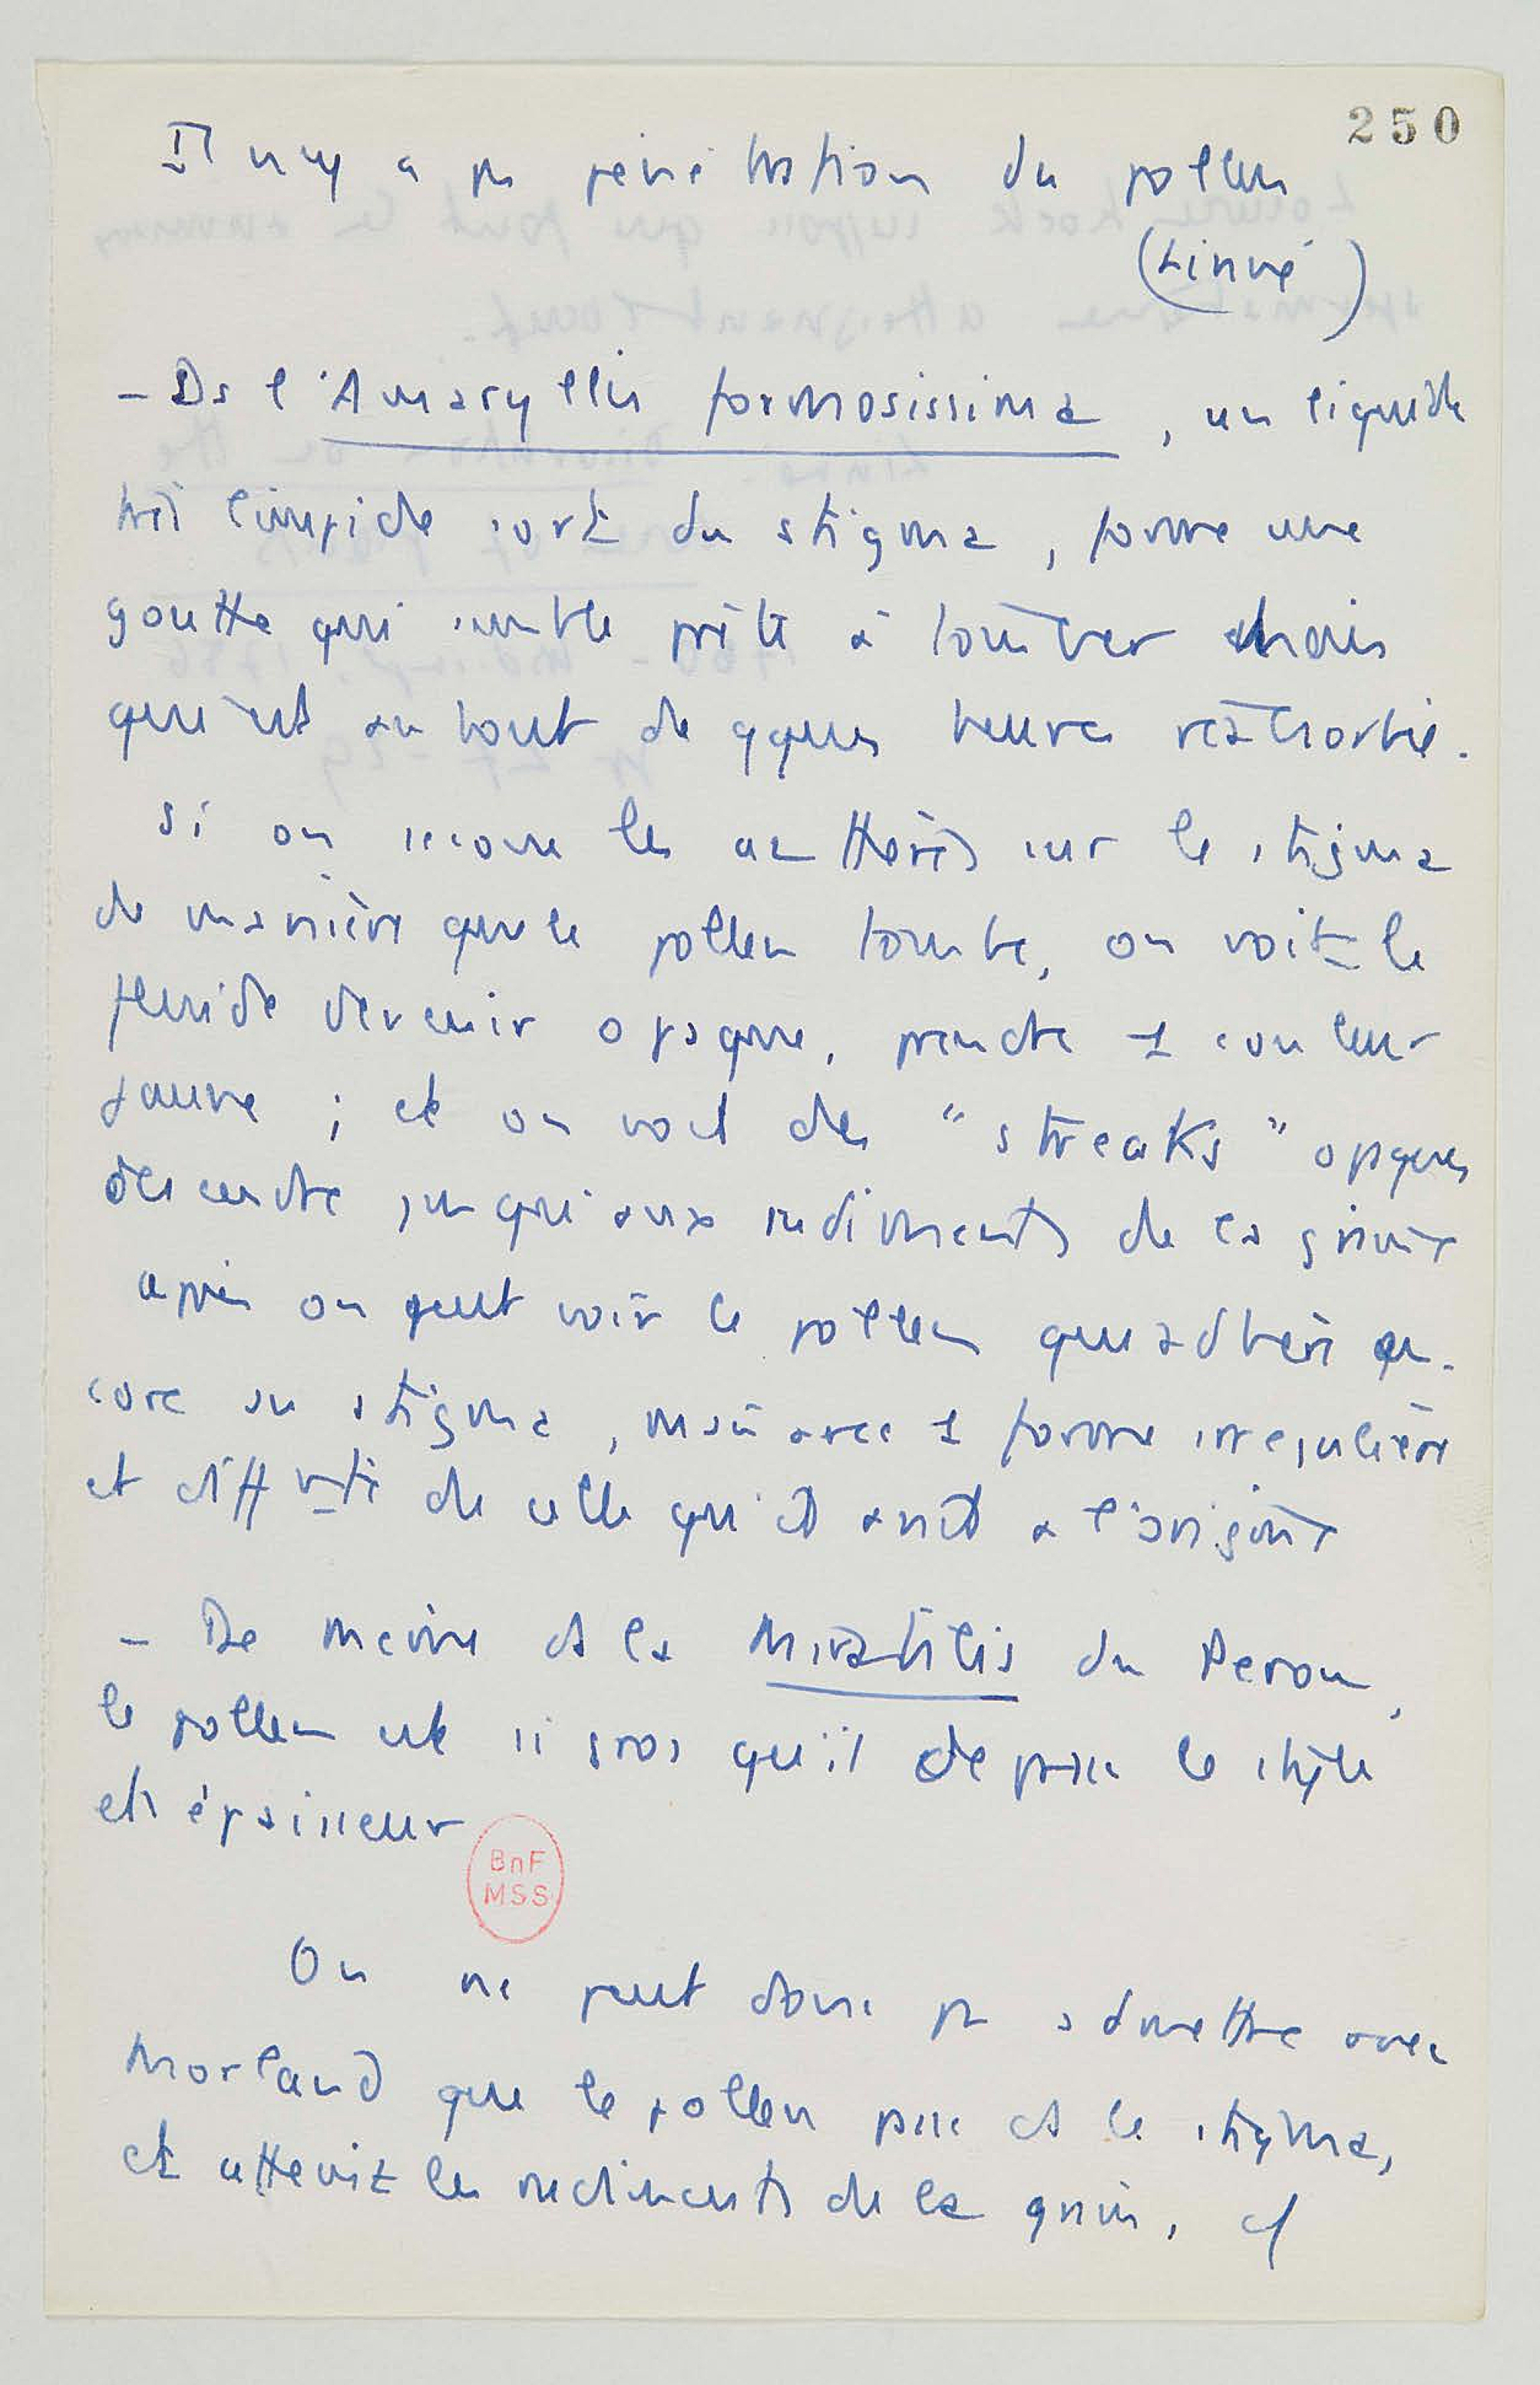 250
Il n'y a pas pénétration du pollen
(Linné)
- Ds l'Amaryllis formosissima, un liquide
très limpide sort du stigma, forme une
goutte qui semble prête à tomber mais
qui est au bout de qques heures réabsorbée.
Si on secoue les anthères sur le stigma
de manière que le pollen tombe, on voit le
fluide devenir opaque, prendre 1 couleur
jaune ; et on voit des "streaks" opaques
descendre jusqu'aux rudiments de la graine
après on peut voir le pollen qui adhère en-
core au stigma, mais avec 1 forme irrégulière
et différente de celle qu'il avait à l'origine
- De même ds la Mirabilis du Perou,
le pollen est si gros qu'il depasse le style
en épaisseur
BnF
MSS
On ne peut donc pas admettre avec
Morland que le pollen passe ds le stigma,
et atteint les rudiments de la graine,